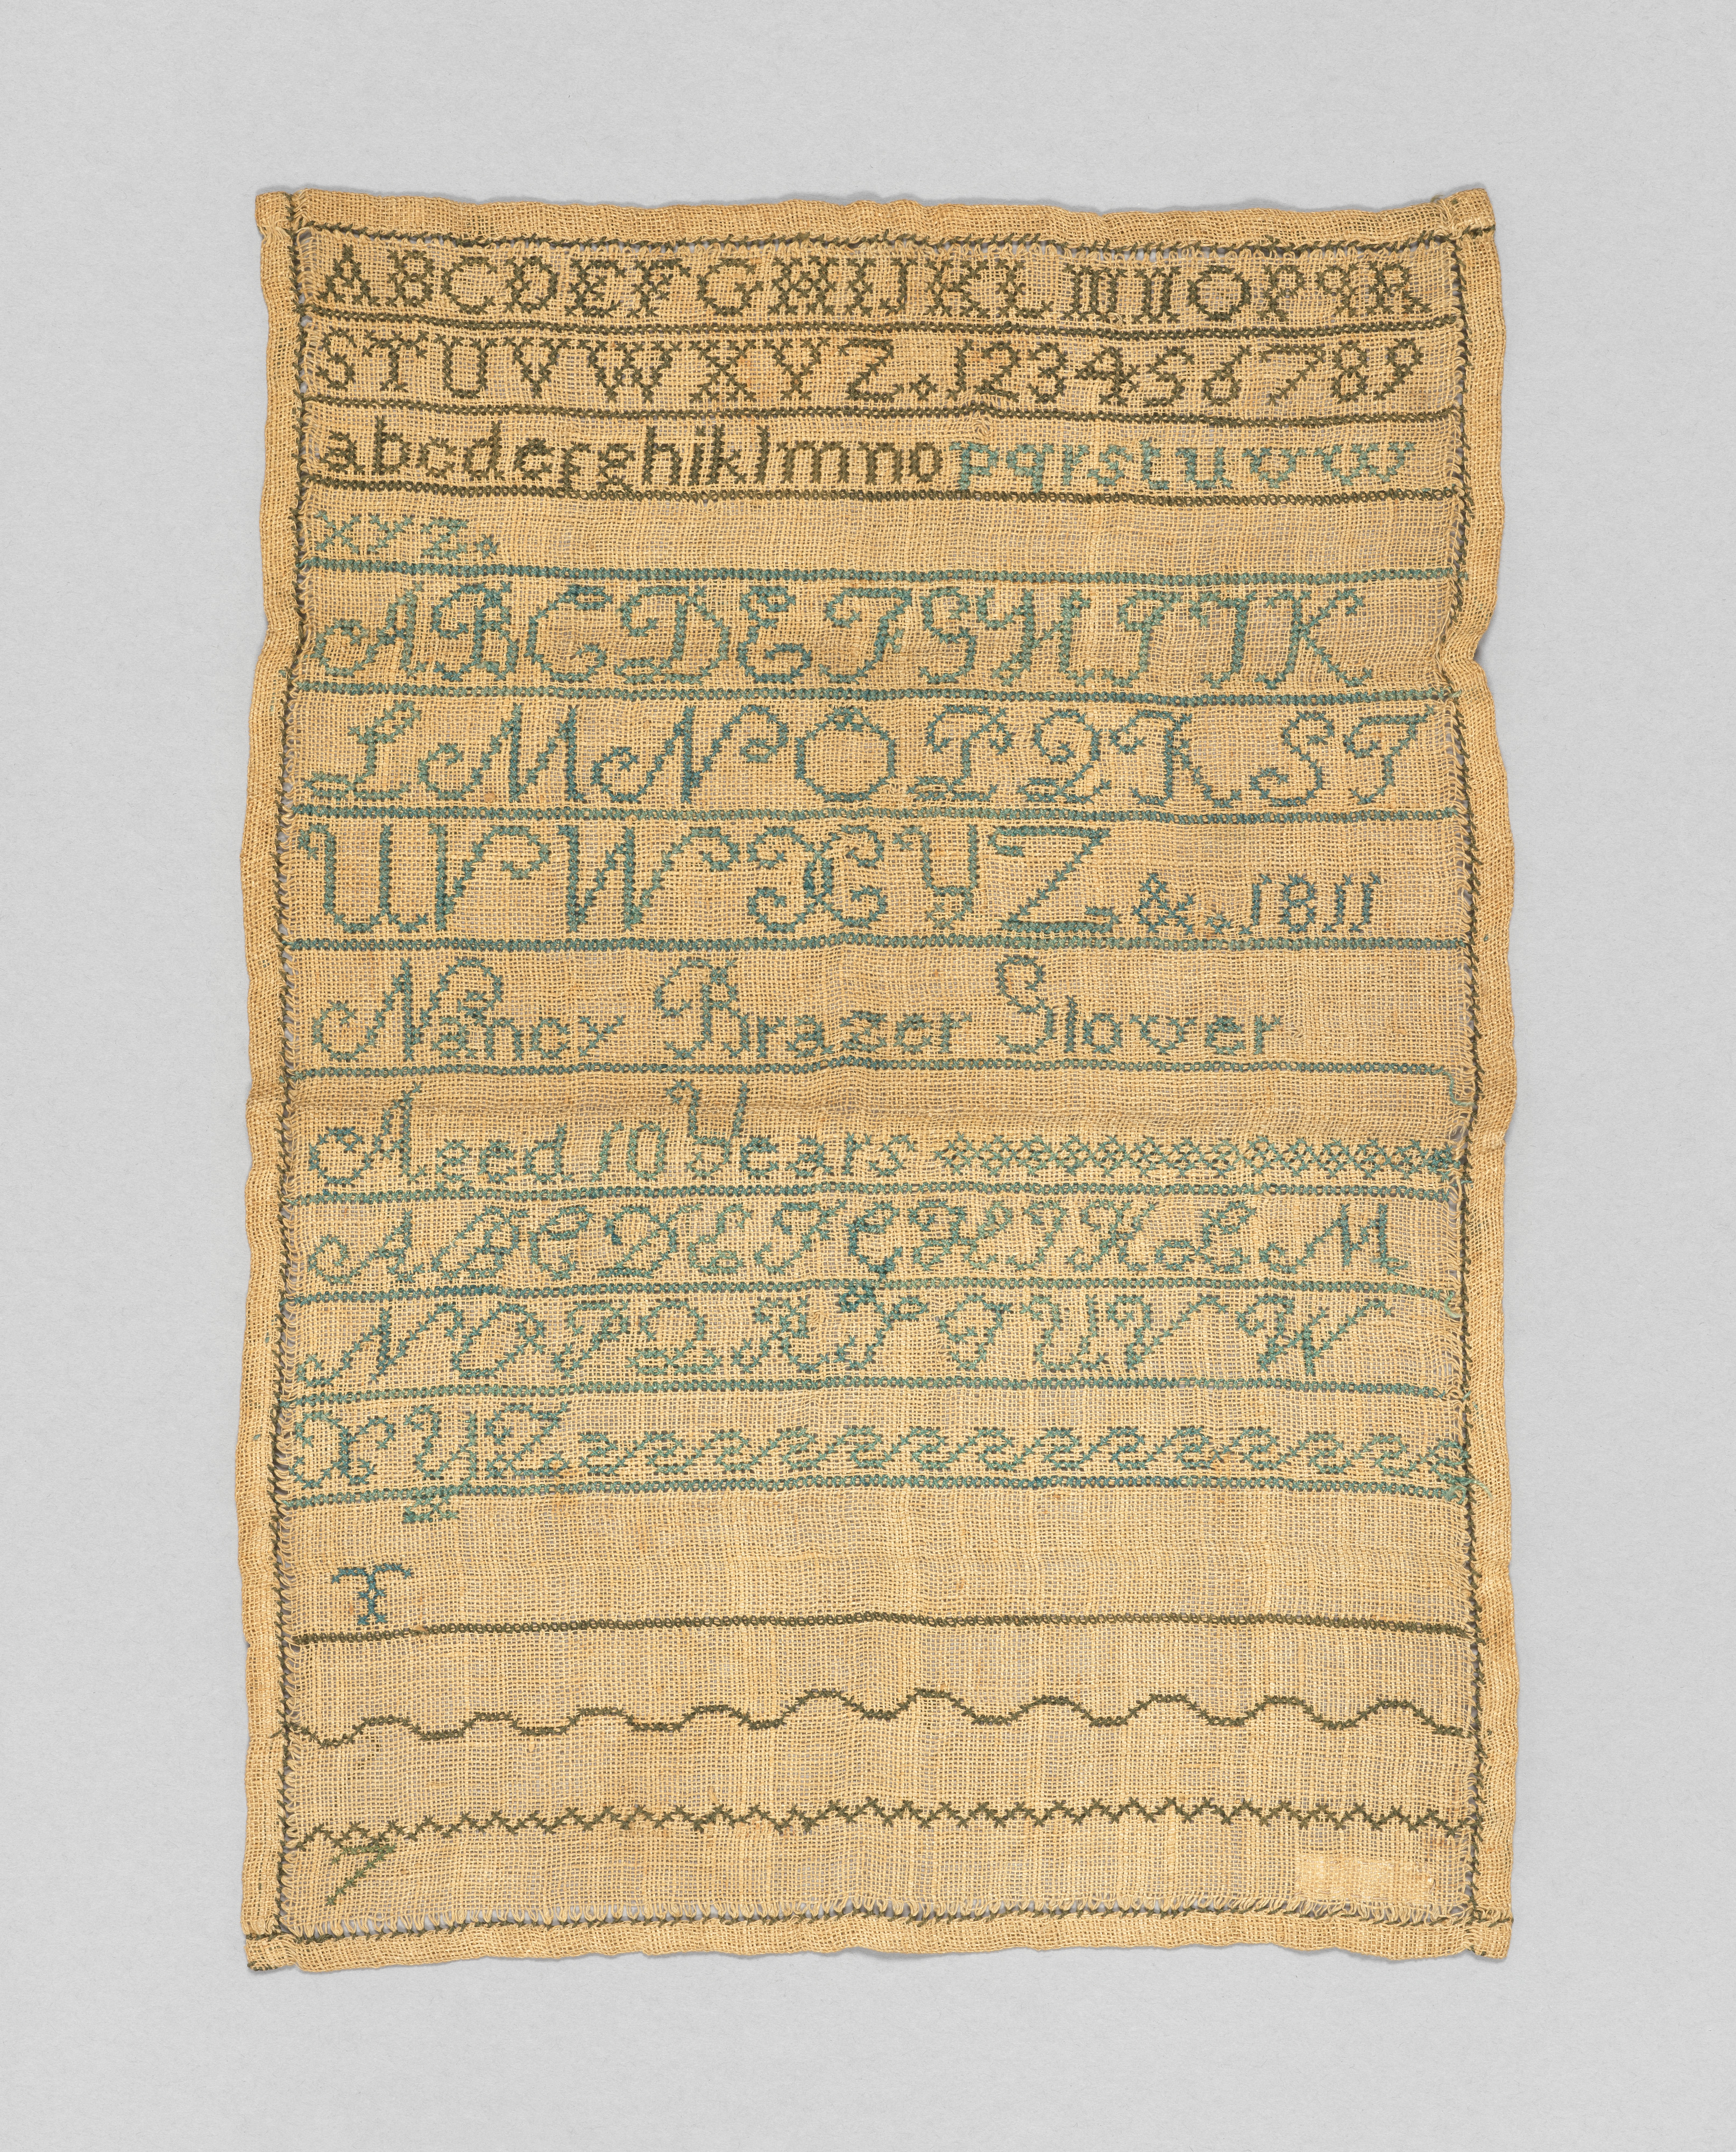 ABCDEFGHIJKLMNOPQR
STUVWXYZ.123456789
abcdefghiklmnopqrstuvw
xyz.
ABCDEFGHIJK
LMNOPQRST
UVWXYZ&.1811
Nancy Brazer Slover
Aged 10 Years
ABCDEFGHIJKLM
NOPQRSTUVW
XYZ